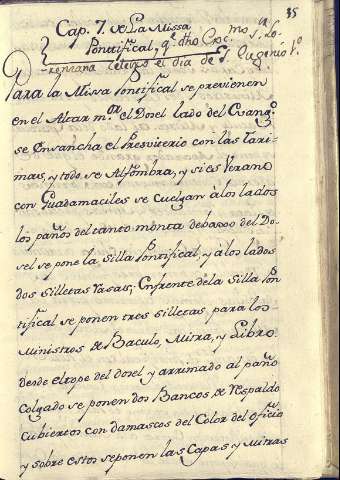 35
Cap. 7. de La Missa
Pontifical, q.e dho Exc.mo S.r Lo-
renzana celebró el dia de S. Eugenio 1.º
Para la Missa Pontifical se previenen
en el Altar m.or el Dosel lado del Evang.o
se ensancha el Presviterio con las Tari-
mas, y todo se Alfombra, y si es Verano
con Guadamaciles se cuelgan à los lados
los paños del tanto monta debaxo del Do-
sel se pone la silla Pontifical, y à los lados
dos silletas rasas; Enfrente de la silla Pon
tifical se ponen tres silletas para los
Ministros de Baculo, Mitra, y Libro.
desde el tope del dosel y arrimado al paño
Colgado se ponen dos Bancos de respaldo
cubiertos con damascos del Color del oficio
y sobre estos se ponen las Capas, y Mitras